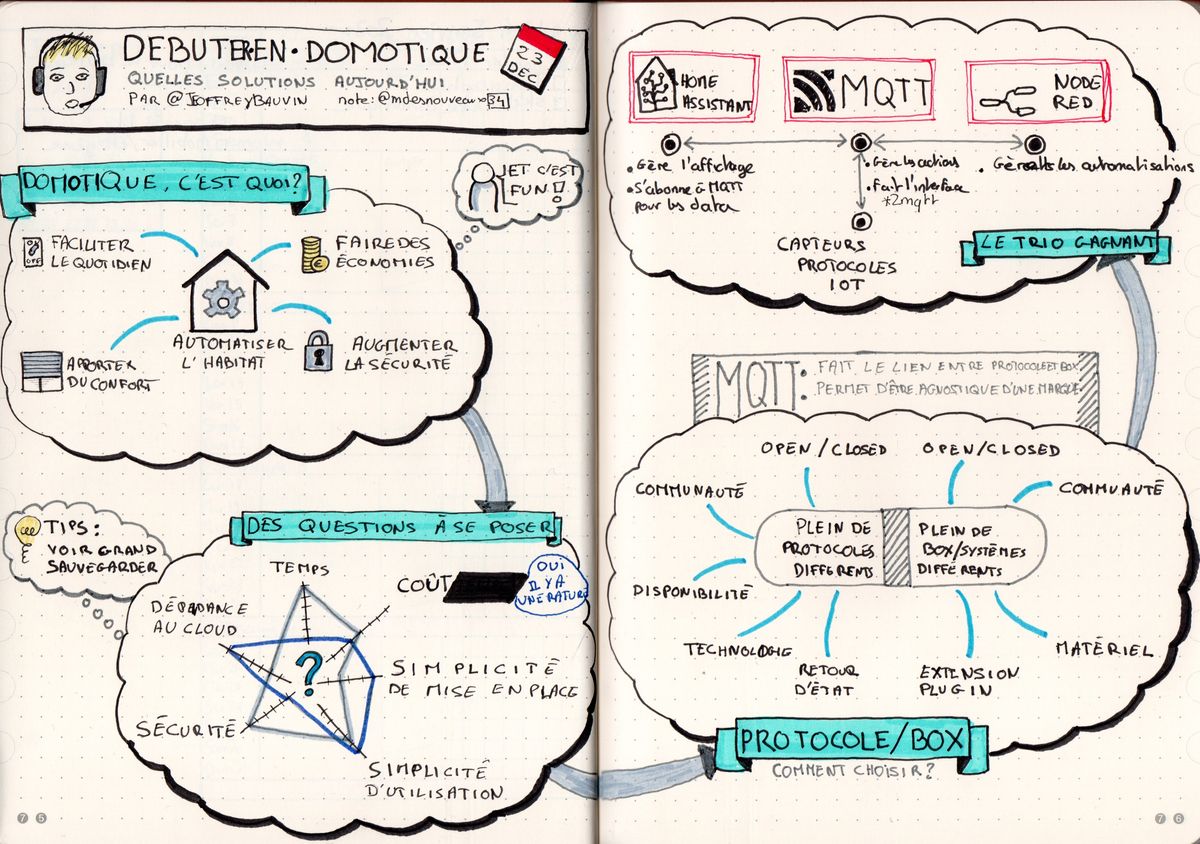 DEBUTER EN • DOMOTIQUE
QUELLES SOLUTIONS AUJOURD'HUI
PAR @JEOFFREYBAUVIN note: @mdesnouveaux34
23
DEC
DOMOTIQUE, C'EST QUOI?
JET C'EST
FUN!
FACILITER
LE QUOTIDIEN
FAIRE DES
ÉCONOMIES
€
AUTOMATISER
L'HABITAT
APPORTER
DU CONFORT
AUGMENTER
LA SÉCURITÉ
TIPS:
VOIR GRAND
SAUVEGARDER
DES QUESTIONS À SE POSER
TEMPS
COÛT
OUI
IL Y A
UNE RATURE
DÉPENDANCE
AU CLOUD
?
SIMPLICITÉ
DE MISE EN PLACE
SÉCURITÉ
SIMPLICITÉ
D'UTILISATION
7 5
HOME
ASSISTANT
MQTT
NODE
RED
• Gère l'affichage
• S'abonne à MQTT
pour les data
• Gère les actions
• Fait l'interface
*2mqtt
• Gère les automatisations
CAPTEURS
PROTOCOLES
IOT
LE TRIO GAGNANT
MQTT: FAIT LE LIEN ENTRE PROTOCOLE ET BOX
PERMET D'ÊTRE AGNOSTIQUE D'UNE MARQUE
OPEN/CLOSED
OPEN/CLOSED
COMMUNAUTÉ
COMMUAUTÉ
PLEIN DE
PROTOCOLES
DIFFERENTS
PLEIN DE
BOX/SYSTÈMES
DIFFÉRENTS
DISPONIBILITÉ
TECHNOLOGIE
RETOUR
D'ÉTAT
EXTENSION
PLUGIN
MATÉRIEL
PROTOCOLE/BOX
COMMENT CHOISIR?
7 6